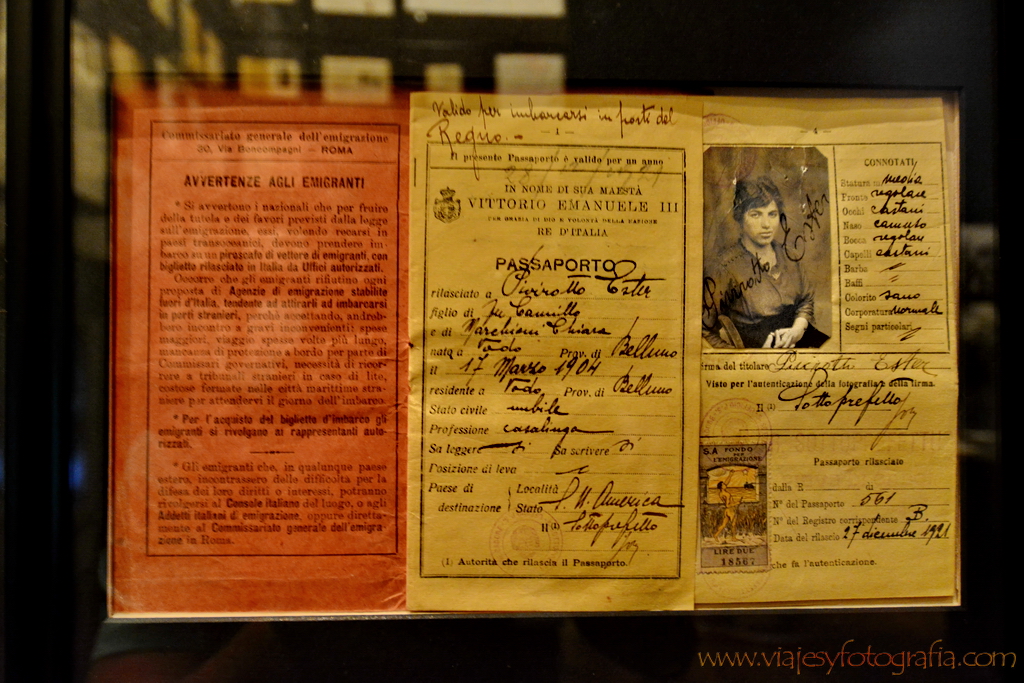 Commissariato generale dell'emigrazione
30, Via Boncompagni - ROMA
AVVERTENZE AGLI EMIGRANTI
* Si avvertono i nazionali che per fruire
della tutela e dei favori previsti dalla legge
sull'emigrazione, essi, volendo recarsi in
paesi transoceanici, devono prendere im-
barco su un piroscafo di vettore di emigranti, con
biglietto rilasciato in Italia da Uffici autorizzati.
Occorre che gli emigranti rifiutino ogni
proposta di Agenzie di emigrazione stabilite
fuori d'Italia, tendente ad attirarli ad imbarcarsi
in porti stranieri, perchè accettando, androb-
bero incontro a gravi inconvenienti: spese
maggiori, viaggio spesso volte più lungo,
mancanza di protezione a bordo per parte di
Commissari governativi, necessità di ricor-
rere a tribunali stranieri in caso di lite,
costose fermate nelle città marittime stra-
niere per attendervi il giorno dell'imbarco.
* Per l'acquisto del biglietto d'imbarco gli
emigranti si rivolgano ai rappresentanti auto-
rizzati.
* Gli emigranti che, in qualunque paese
estero, incontrassero delle difficoltà per la
difesa dei loro diritti o interessi, potranno
rivolgersi al Console italiano del luogo, o agli
Addetti italiani d'emigrazione, oppure diretta-
mente al Commissariato generale dell'emigra-
zione in Roma.
Valido per imbarcarsi in porti del
Regno.-
- 1 -
Il presente Passaporto è valido per un anno
IN NOME DI SUA MAESTÀ
VITTORIO EMANUELE III
PER GRAZIA DI DIO E VOLONTÀ DELLA NAZIONE
RE D'ITALIA
PASSAPORTO
rilasciato a Pivirotto Ester
figlio di fu Camillo
e di Marchioni Chiara
nato a Vodo Prov. di Belluno
il 17 Marzo 1904
residente a Vodo Prov. di Belluno
Stato civile nubile
Professione casalinga
Sa leggere si Sa scrivere si
Posizione di leva
Paese di destinazione
Località
Stato S. U. America
Il (1) Sottoprefetto
(1) Autorità che rilascia il Passaporto.
- 4 -
Pivirotto Ester
CONNOTATI
Statura media
Fronte regolare
Occhi castani
Naso camuso
Bocca regolare
Capelli castani
Barba "
Baffi "
Colorito sano
Corporatura normale
Segni particolari
rma del titolare Pivirotto Ester
Visto per l'autenticazione della fotografia e della firma.
Il (1) Sottoprefetto
S.A FONDO
PER
L'EMIGRAZIONE
LIRE DUE
18567
Passaporto rilasciato
dalla R di
N° del Passaporto 561
N° del Registro corrispondente B.
Data del rilascio 27 dicembre 1921
che fa l'autenticazione.
www.viajesyfotografia.com